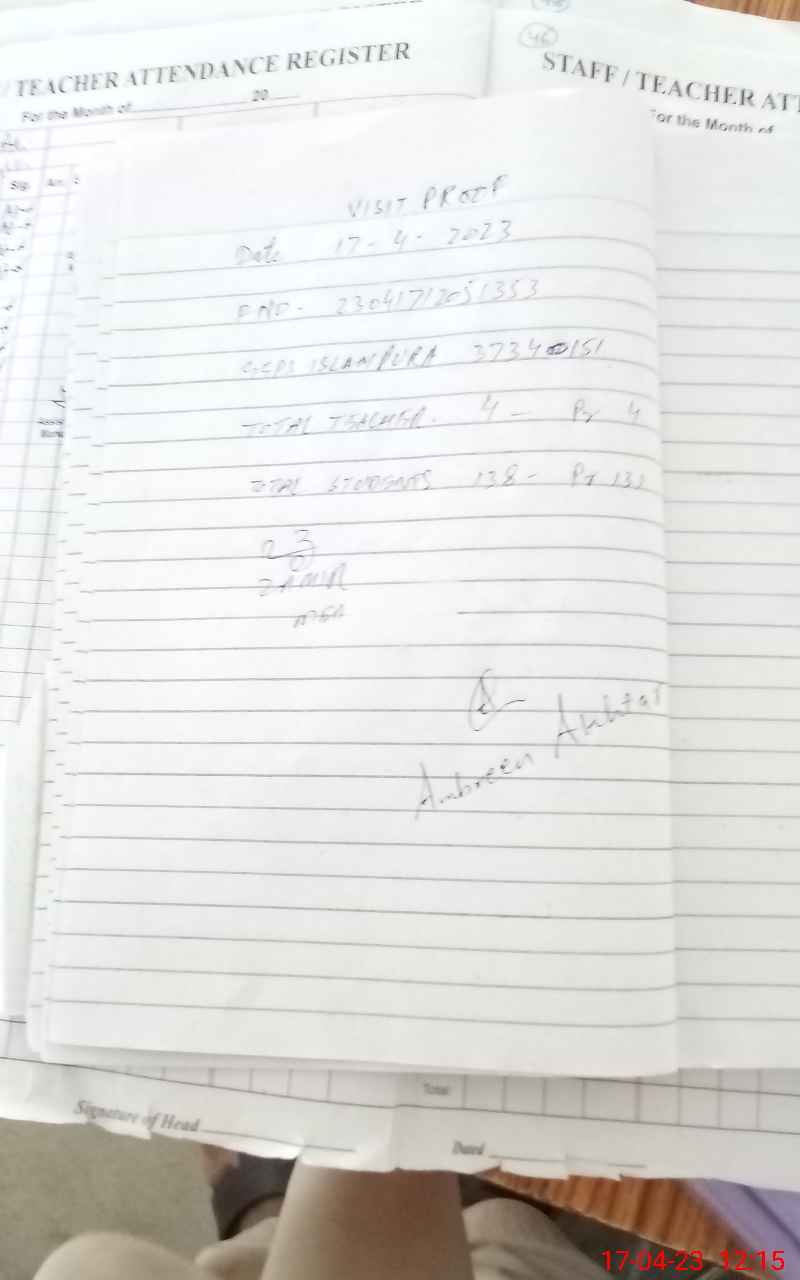 46
TEACHER ATTENDANCE REGISTER
For the Month of 20
STAFF / TEACHER ATT
For the Month of
Sig.
VISIT PROOF
Date 17-4-2023
23041712051353
ISLAMPURA 3734 0151
TOTAL TEACHER. 4 - Pr 4
TOTAL STUDENTS 138 - Pr 131
ZAMIR
MEA
Ambreen Akhtar
Total
Signature of Head
Dated
17-04-23 12:15